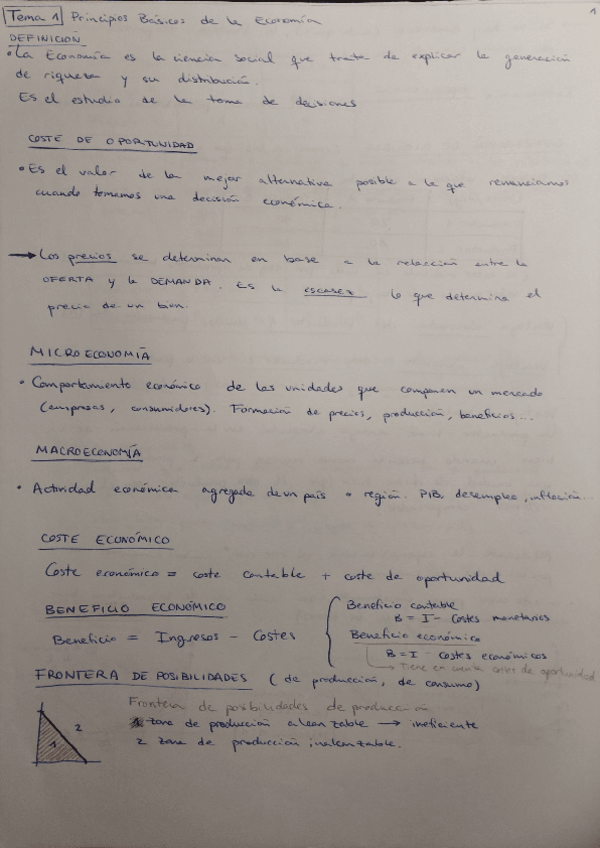 Tema 1 Principios Básicos de la Economía
1
DEFINICIÓN
• La Economía es la ciencia social que trata de explicar la generación
de riqueza y su distribución.
Es el estudio de la toma de decisiones
COSTE DE OPORTUNIDAD
• Es el valor de la mejor alternativa posible a la que renunciamos
cuando tomamos una decisión económica.
→ Los precios se determinan en base a la relacción entre la
OFERTA y la DEMANDA. Es la escasez lo que determina el
precio de un bien.
MICROECONOMÍA
• Comportamiento económico de las unidades que componen un mercado
(empresas, consumidores). Formación de precios, producción, beneficios...
MACROECONOMÍA
• Actividad económica agregada de un país o región. PIB, desempleo, inflación...
COSTE ECONÓMICO
Coste económico = coste contable + coste de oportunidad
BENEFICIO ECONÓMICO
Beneficio = Ingresos - Costes
Beneficio contable
B = I - Costes monetarios
Beneficio económico
B = I - Costes económicos
→ Tiene en cuenta coste de oportunidad
FRONTERA DE POSIBILIDADES (de producción, de consumo)
Frontera de posibilidades de producción
1 zona de producción alcanzable → ineficiente
2 zona de producción inalcanzable.
1
2